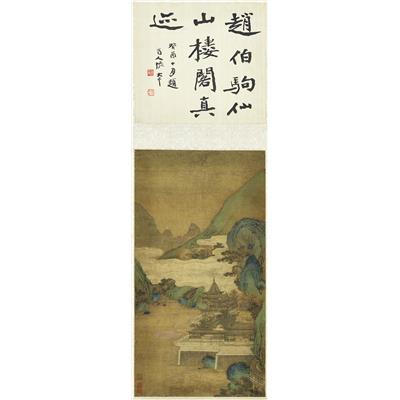 趙伯駒仙
山樓閣真
迹
癸酉十月趙